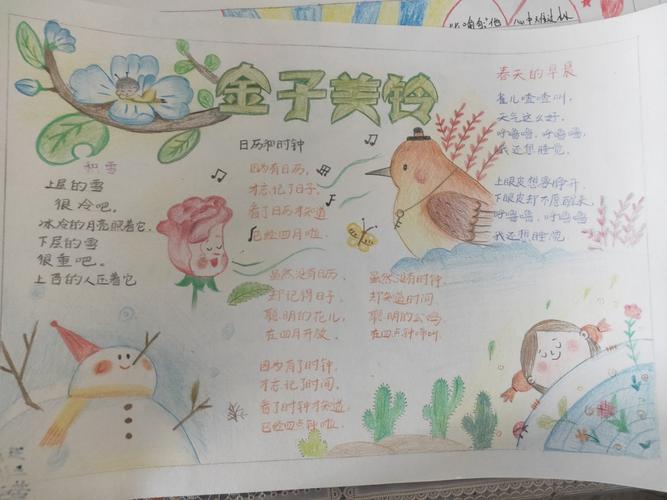 金子美铃
积雪
上层的雪
很冷吧。
冰冷的月亮照着它,
下层的雪
很重吧。
上百的人压着它
日历和时钟
因为有日历,
才忘记了日子,
看了日历才知道
已经四月啦。
虽然没有日历,
却记得日子,
聪明的花儿,
在四月开放。
虽然没有时钟,
却知道时间
聪明的公鸡,
在四点钟啼叫。
因为有了时钟,
才忘记了时间,
看了时钟才知道,
已经四点钟啦。
春天的早晨
雀儿喳喳叫,
天气这么好,
呼噜噜,呼噜噜
我还想睡觉。
上眼皮想要睁开,
下眼皮却不愿醒来,
呼噜噜,呼噜噜
我还想睡觉